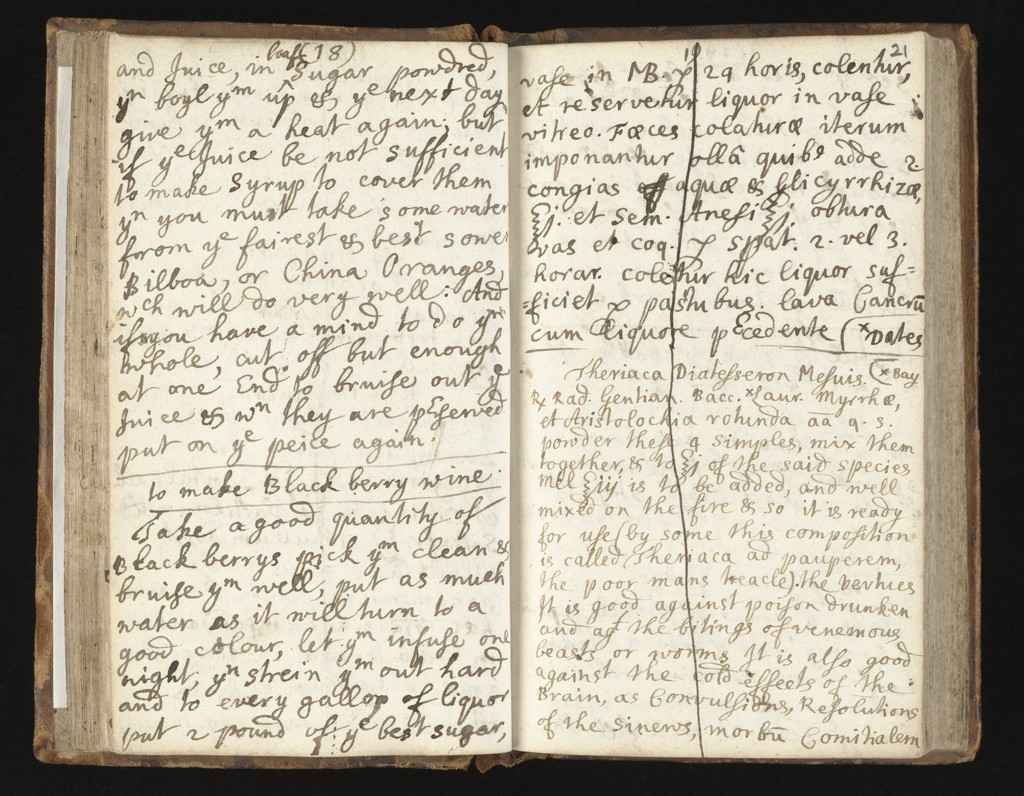 loaf (18)
and Juice, in Sugar powdred,
yn boyl ym up & ye next day
give ym a heat again; but
if ye Juice be not sufficient
to make Syrup to cover them
yn you must take some water
from ye fairest & best sower
Bilboa, or China Oranges,
wch will do very well: And
if you have a mind to do ym
whole, cut off but enough
at one End to bruise out ye
Juice & wn they are pserved
put on ye peice again.
to make Black berry wine.
Take a good quantity of
Black berrys pick ym clean &
bruise ym well, put as much
water as it will turn to a
good colour, let ym infuse one
night, yn strein ym out hard
and to every gallon of liquor
put 2 pound of ye best sugar,
19 21
vase in MB. p 24 horis, colentur,
et reservetur liquor in vase
vitreo. Fæces colaturæ iterum
imponantur ollâ quibs adde 2.
congias aquæ & Glicyrrhizæ,
℥j. et sem. Anesi ℥j. obtura
vas et coq. p spat. 2. vel 3.
horar. coletur hic liquor suf=
=ficiet p pastubus. lava Cancrū
cum liquore pcedente (×Dates
Theriaca Diatesseron Mesuis. (×Bay
℞ Rad. Gentian. Bacc. ×Laur. Myrrhæ,
et Aristolochia rotunda aā q. s.
powder these 4 simples, mix them
together, & to ℥j of the said species
Mel ℥iij is to be added, and well
mixed on the fire & so it is ready
for use (by some this composition
is called Theriaca ad pauperem,
the poor mans treacle). the vertues
It is good against poison drunken
and agt the bitings of venemous
beasts or worms It is also good
against the cold effects of the
Brain, as Convulsions, Resolutions
of the Sinews, morbū Comitialem